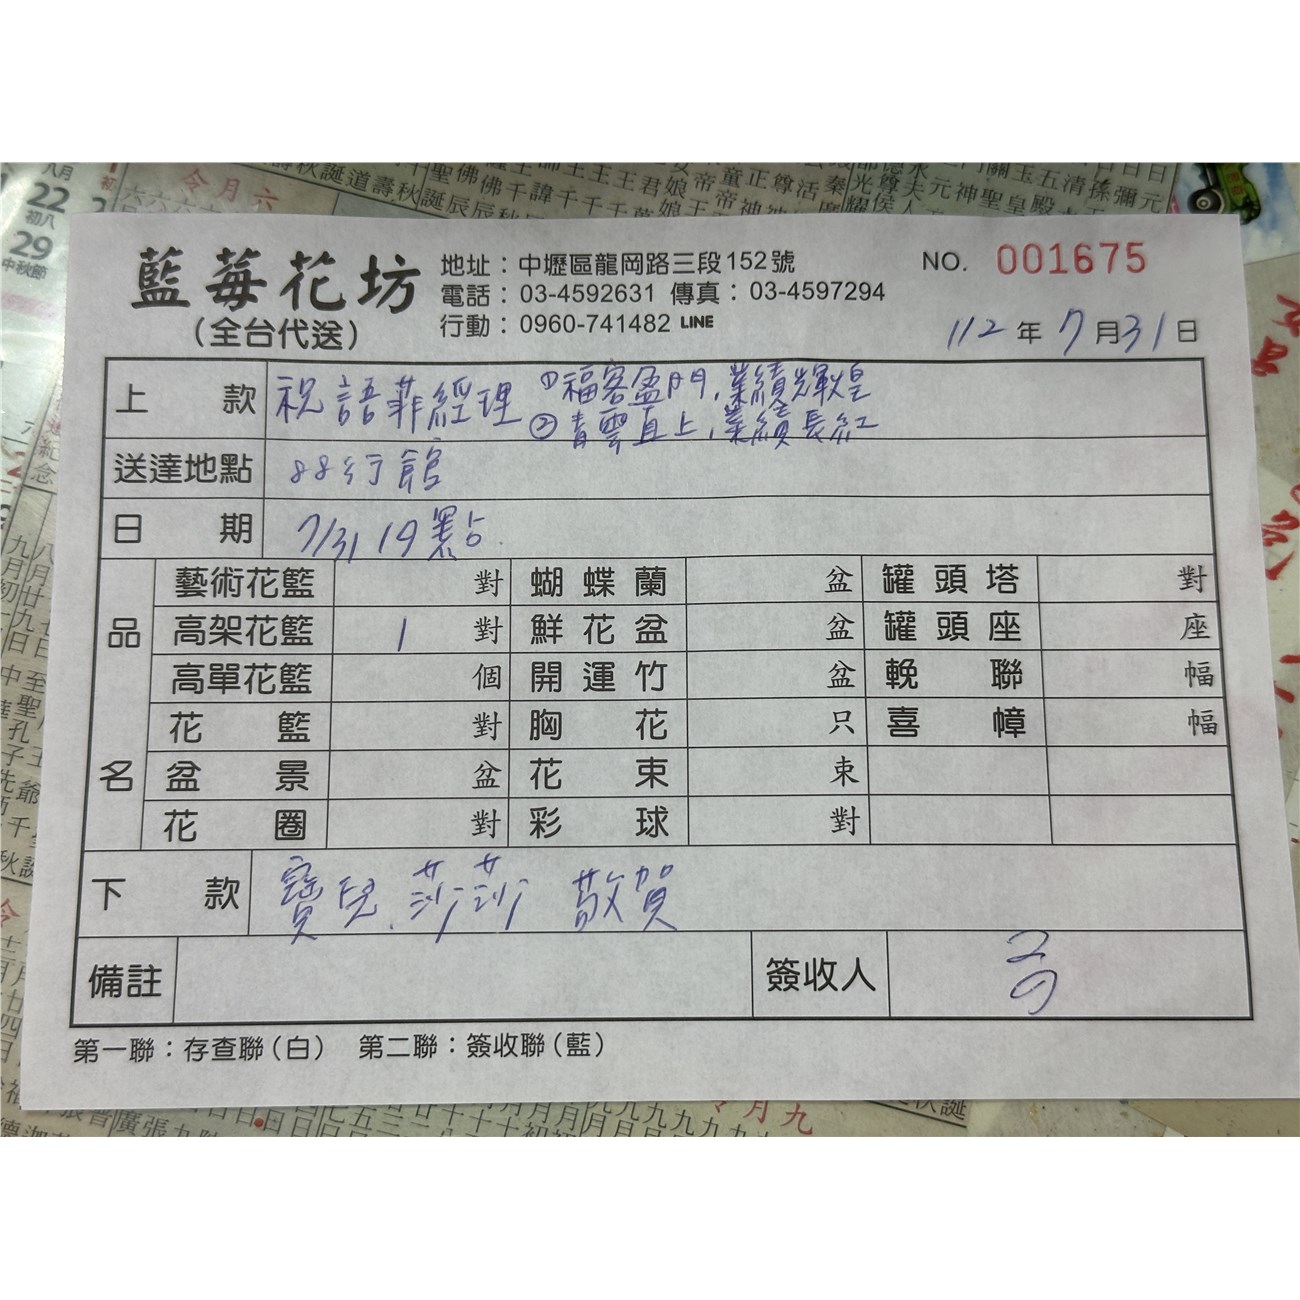 藍莓花坊
(全台代送)
地址：中壢區龍岡路三段152號
電話：03-4592631 傳真：03-4597294
行動：0960-741482 LINE
NO. 001675
112年7月31日
上款 祝 語菲經理 ①福客盈門，業績輝煌
②青雲直上，業績長紅
送達地點 88行館
日期 7/31 19點
品名
藝術花籃 對 蝴蝶蘭 盆 罐頭塔 對
高架花籃 1 對 鮮花盆 盆 罐頭座 座
高單花籃 個 開運竹 盆 輓聯 幅
花籃 對 胸花 只 喜幛 幅
盆景 盆 花束 束
花圈 對 彩球 對
下款 寶兒.莎莎 敬賀
備註 簽收人
第一聯：存查聯(白) 第二聯：簽收聯(藍)
八月
22
初八
29
中秋節
六月令
九月令